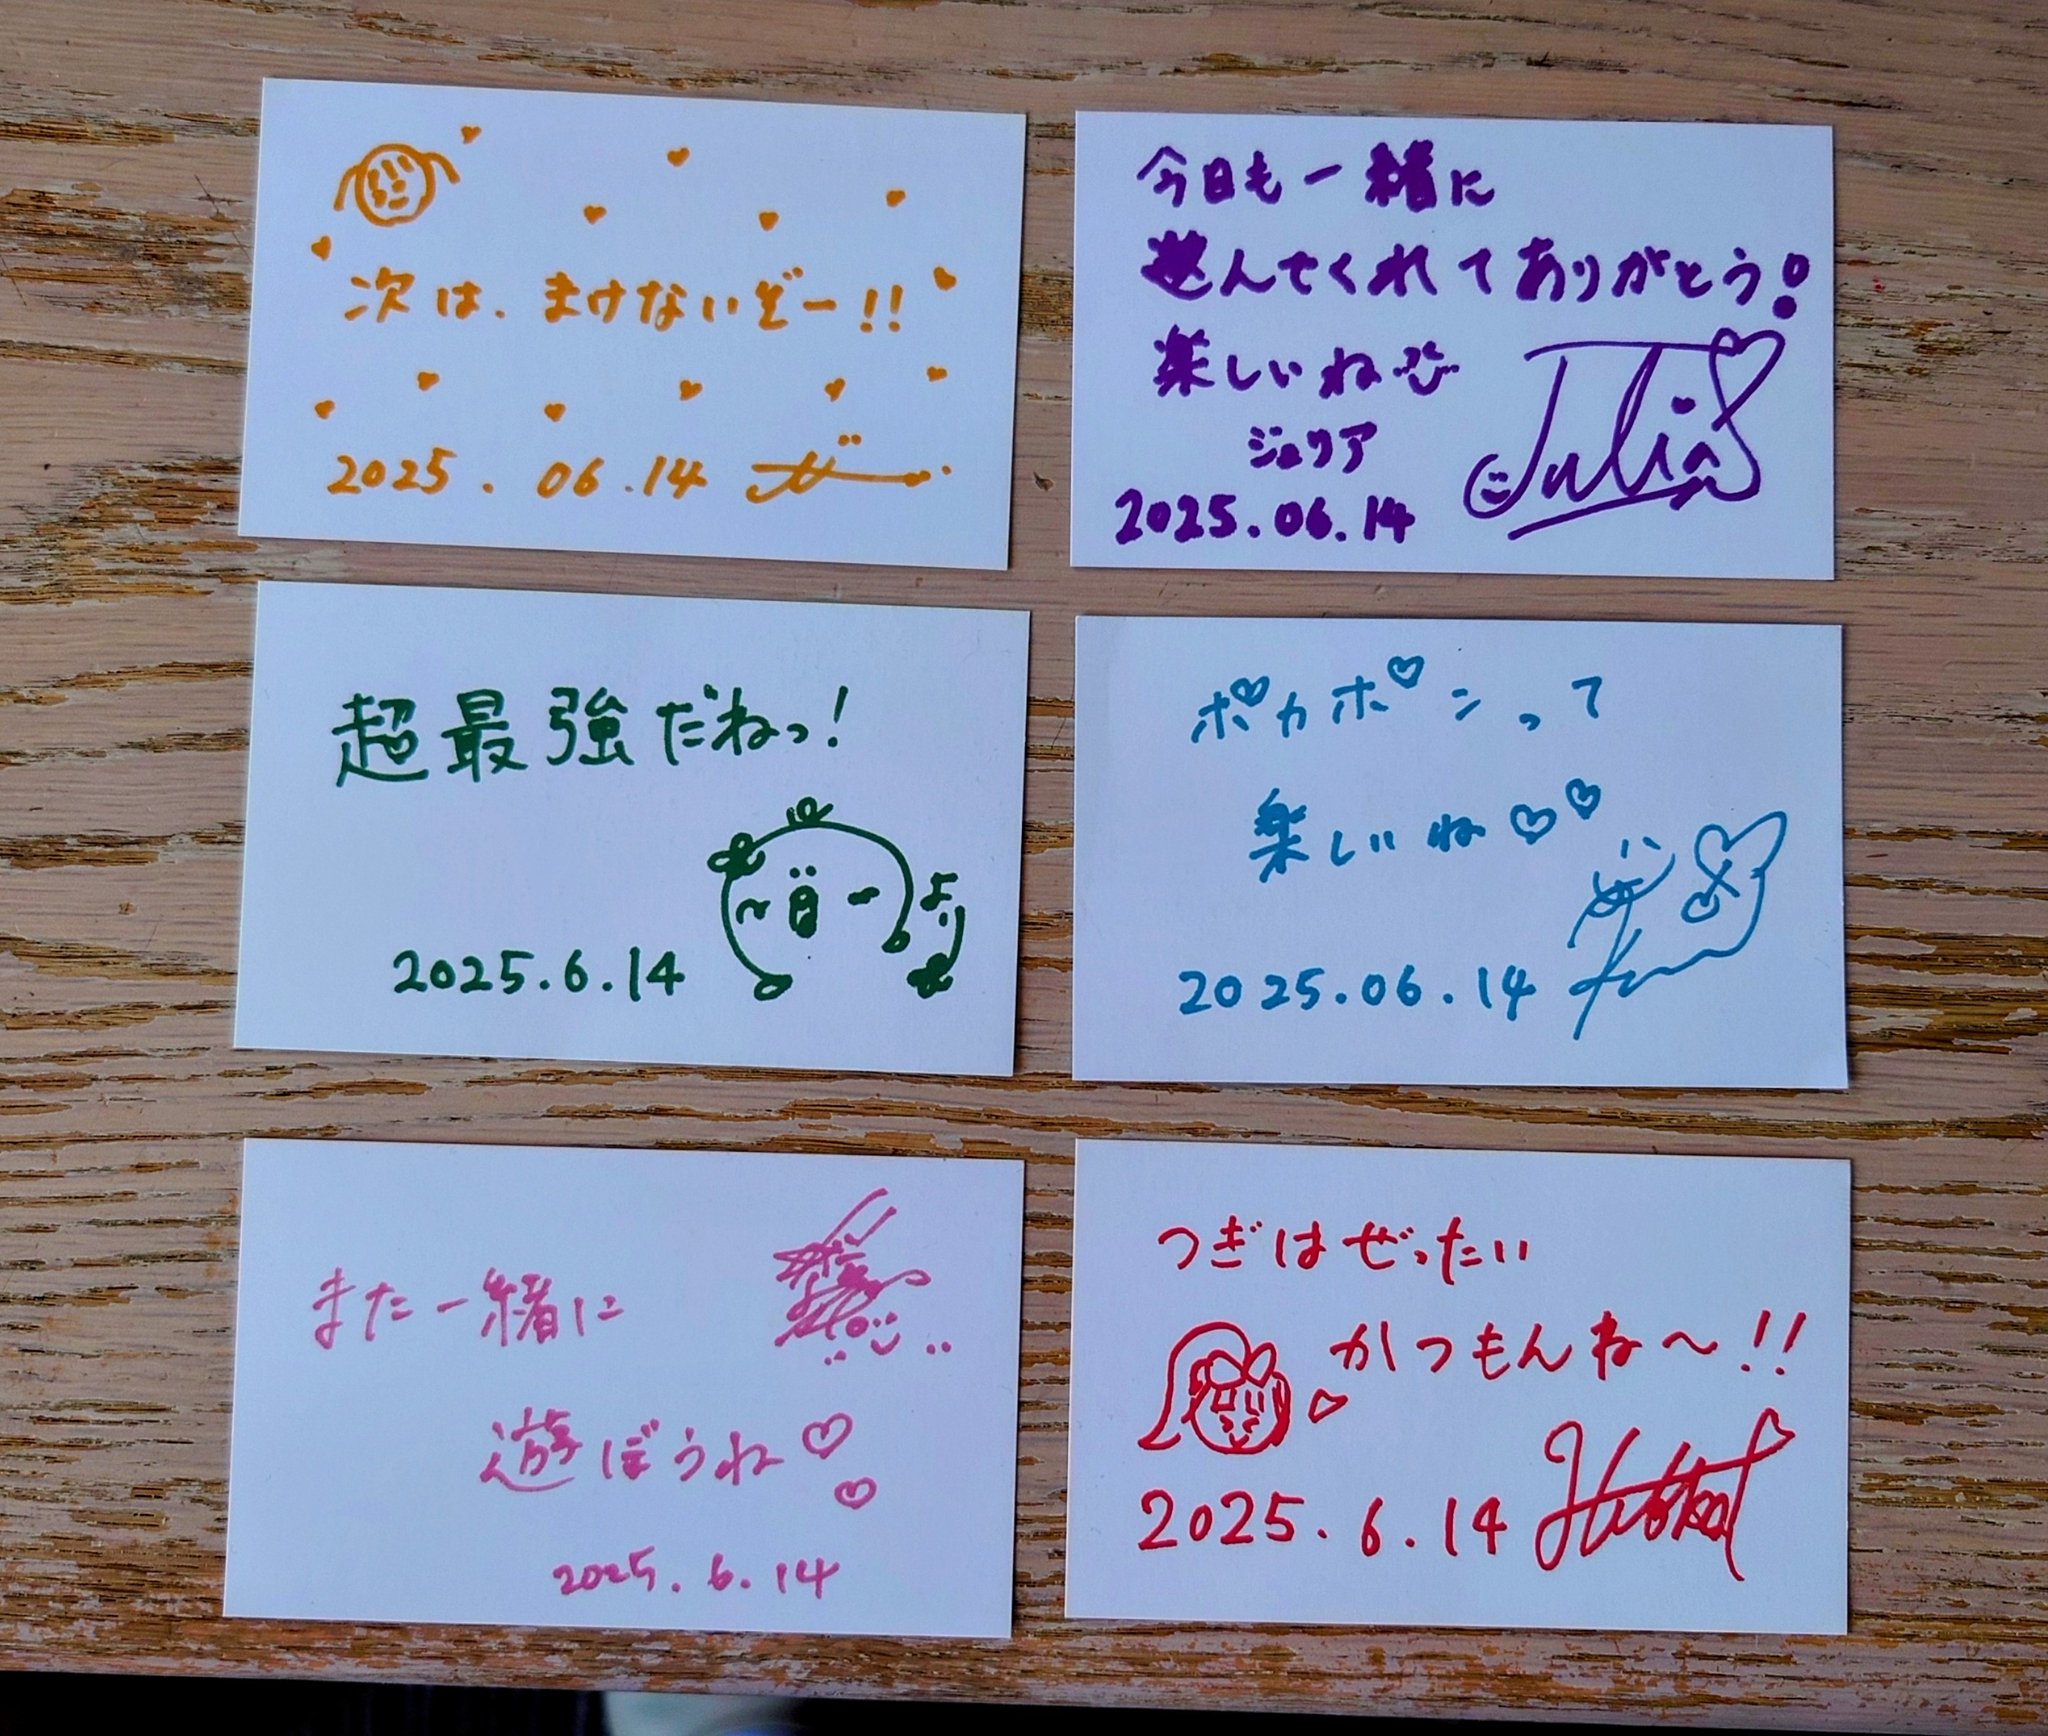 次は、まけないぞー!!
2025.06.14
今日も一緒に
遊んでくれてありがとう!
楽しいね
ジュリア
2025.06.14
Julia
超最強だねっ!
2025.6.14
ポカポンって
楽しいね♡♡
2025.06.14
また一緒に
遊ぼうね♡
2025.6.14
つぎはぜったい
かつもんね〜!!
2025.6.14